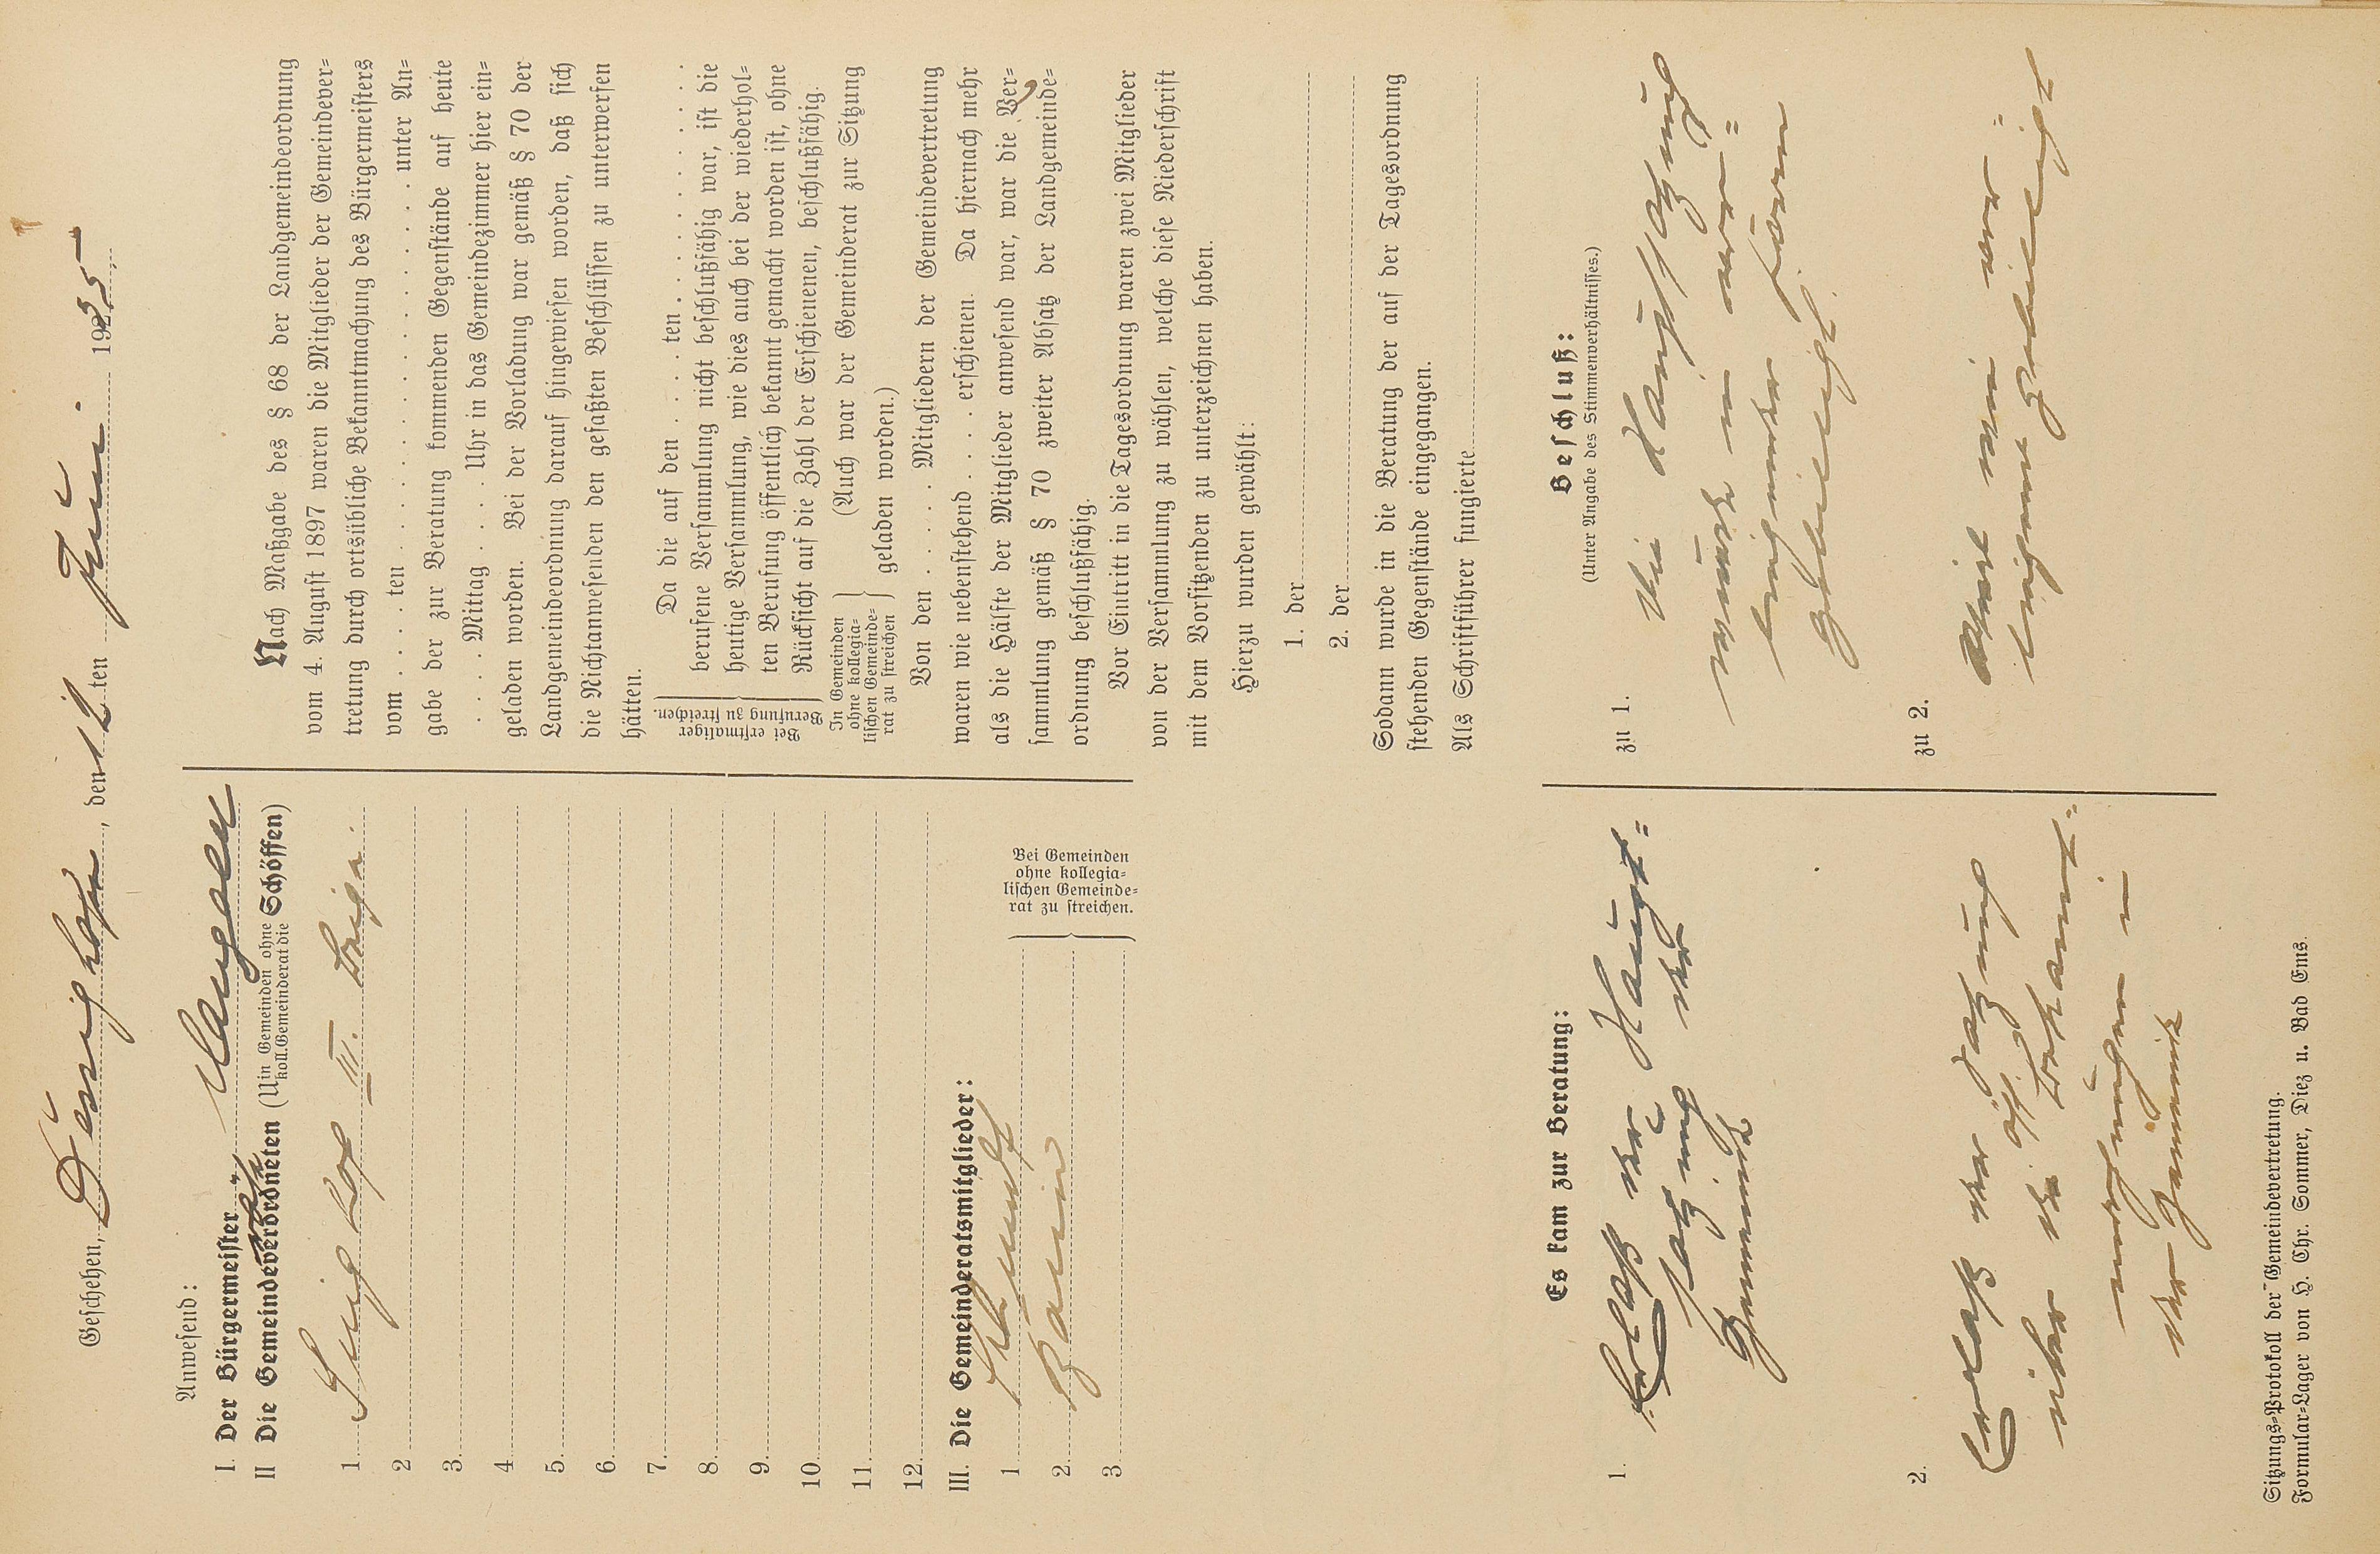 Geschehen, Dessighofen, den 12 ten Juni. 1935
Anwesend:
I. Der Bürgermeister
II Die Gemeindeverordneten (Uin Gemeinden ohne koll. Gemeinderat die Schöffen)
1.
2
3.
4.
5.
6.
7.
8.
9.
10.
11.
12.
III. Die Gemeinderatsmitglieder:
1.
2.
3.
Bei Gemeinden
ohne kollegia-
lischen Gemeinde-
rat zu streichen.
Nach Maßgabe des § 68 der Landgemeindeordnung
vom 4. August 1897 waren die Mitglieder der Gemeindever-
tretung durch ortsübliche Bekanntmachung des Bürgermeisters
vom . . . . ten . . . . . . . . . . . . . . . . . unter An-
gabe der zur Beratung kommenden Gegenstände auf heute
. . . . Mittag . . . . Uhr in das Gemeindezimmer hier ein-
geladen worden. Bei der Vorladung war gemäß § 70 der
Landgemeindeordnung darauf hingewiesen worden, daß sich
die Nichtanwesenden den gefaßten Beschlüssen zu unterwerfen
hätten.
Bei erstmaliger
Berufung zu streichen.
Da die auf den . . . . ten . . . . . . . . . . .
berufene Versammlung nicht beschlußfähig war, ist die
heutige Versammlung, wie dies auch bei der wiederhol-
ten Berufung öffentlich bekannt gemacht worden ist, ohne
Rücksicht auf die Zahl der Erschienenen, beschlußfähig.
In Gemeinden
ohne kollegia-
lischen Gemeinde-
rat zu streichen
(Auch war der Gemeinderat zur Sitzung
geladen worden.)
Von den . . . . . Mitgliedern der Gemeindevertretung
waren wie nebenstehend . . . . erschienen. Da hiernach mehr
als die Hälfte der Mitglieder anwesend war, war die Ver-
sammlung gemäß § 70 zweiter Absatz der Landgemeinde-
ordnung beschlußfähig.
Vor Eintritt in die Tagesordnung waren zwei Mitglieder
von der Versammlung zu wählen, welche diese Niederschrift
mit dem Vorsitzenden zu unterzeichnen haben.
Hierzu wurden gewählt:
1. der
2. der
Sodann wurde in die Beratung der auf der Tagesordnung
stehenden Gegenstände eingegangen.
Als Schriftführer fungierte
Es kam zur Beratung:
1. Erlaß der Haupt-
satzung der
Gemeinde
2. Erlaß der Satzung
über die öff. Bekannt-
machungen in
der Gemeinde
Beschluß:
(Unter Angabe des Stimmenverhältnisses.)
zu 1. Die Hauptsatzung
wurde in vor-
liegender Form
gebilligt.
zu 2. Wird wie vor-
liegend gebilligt
Sitzungs-Protokoll der Gemeindevertretung.
Formular-Lager von H. Chr. Sommer, Diez u. Bad Ems.